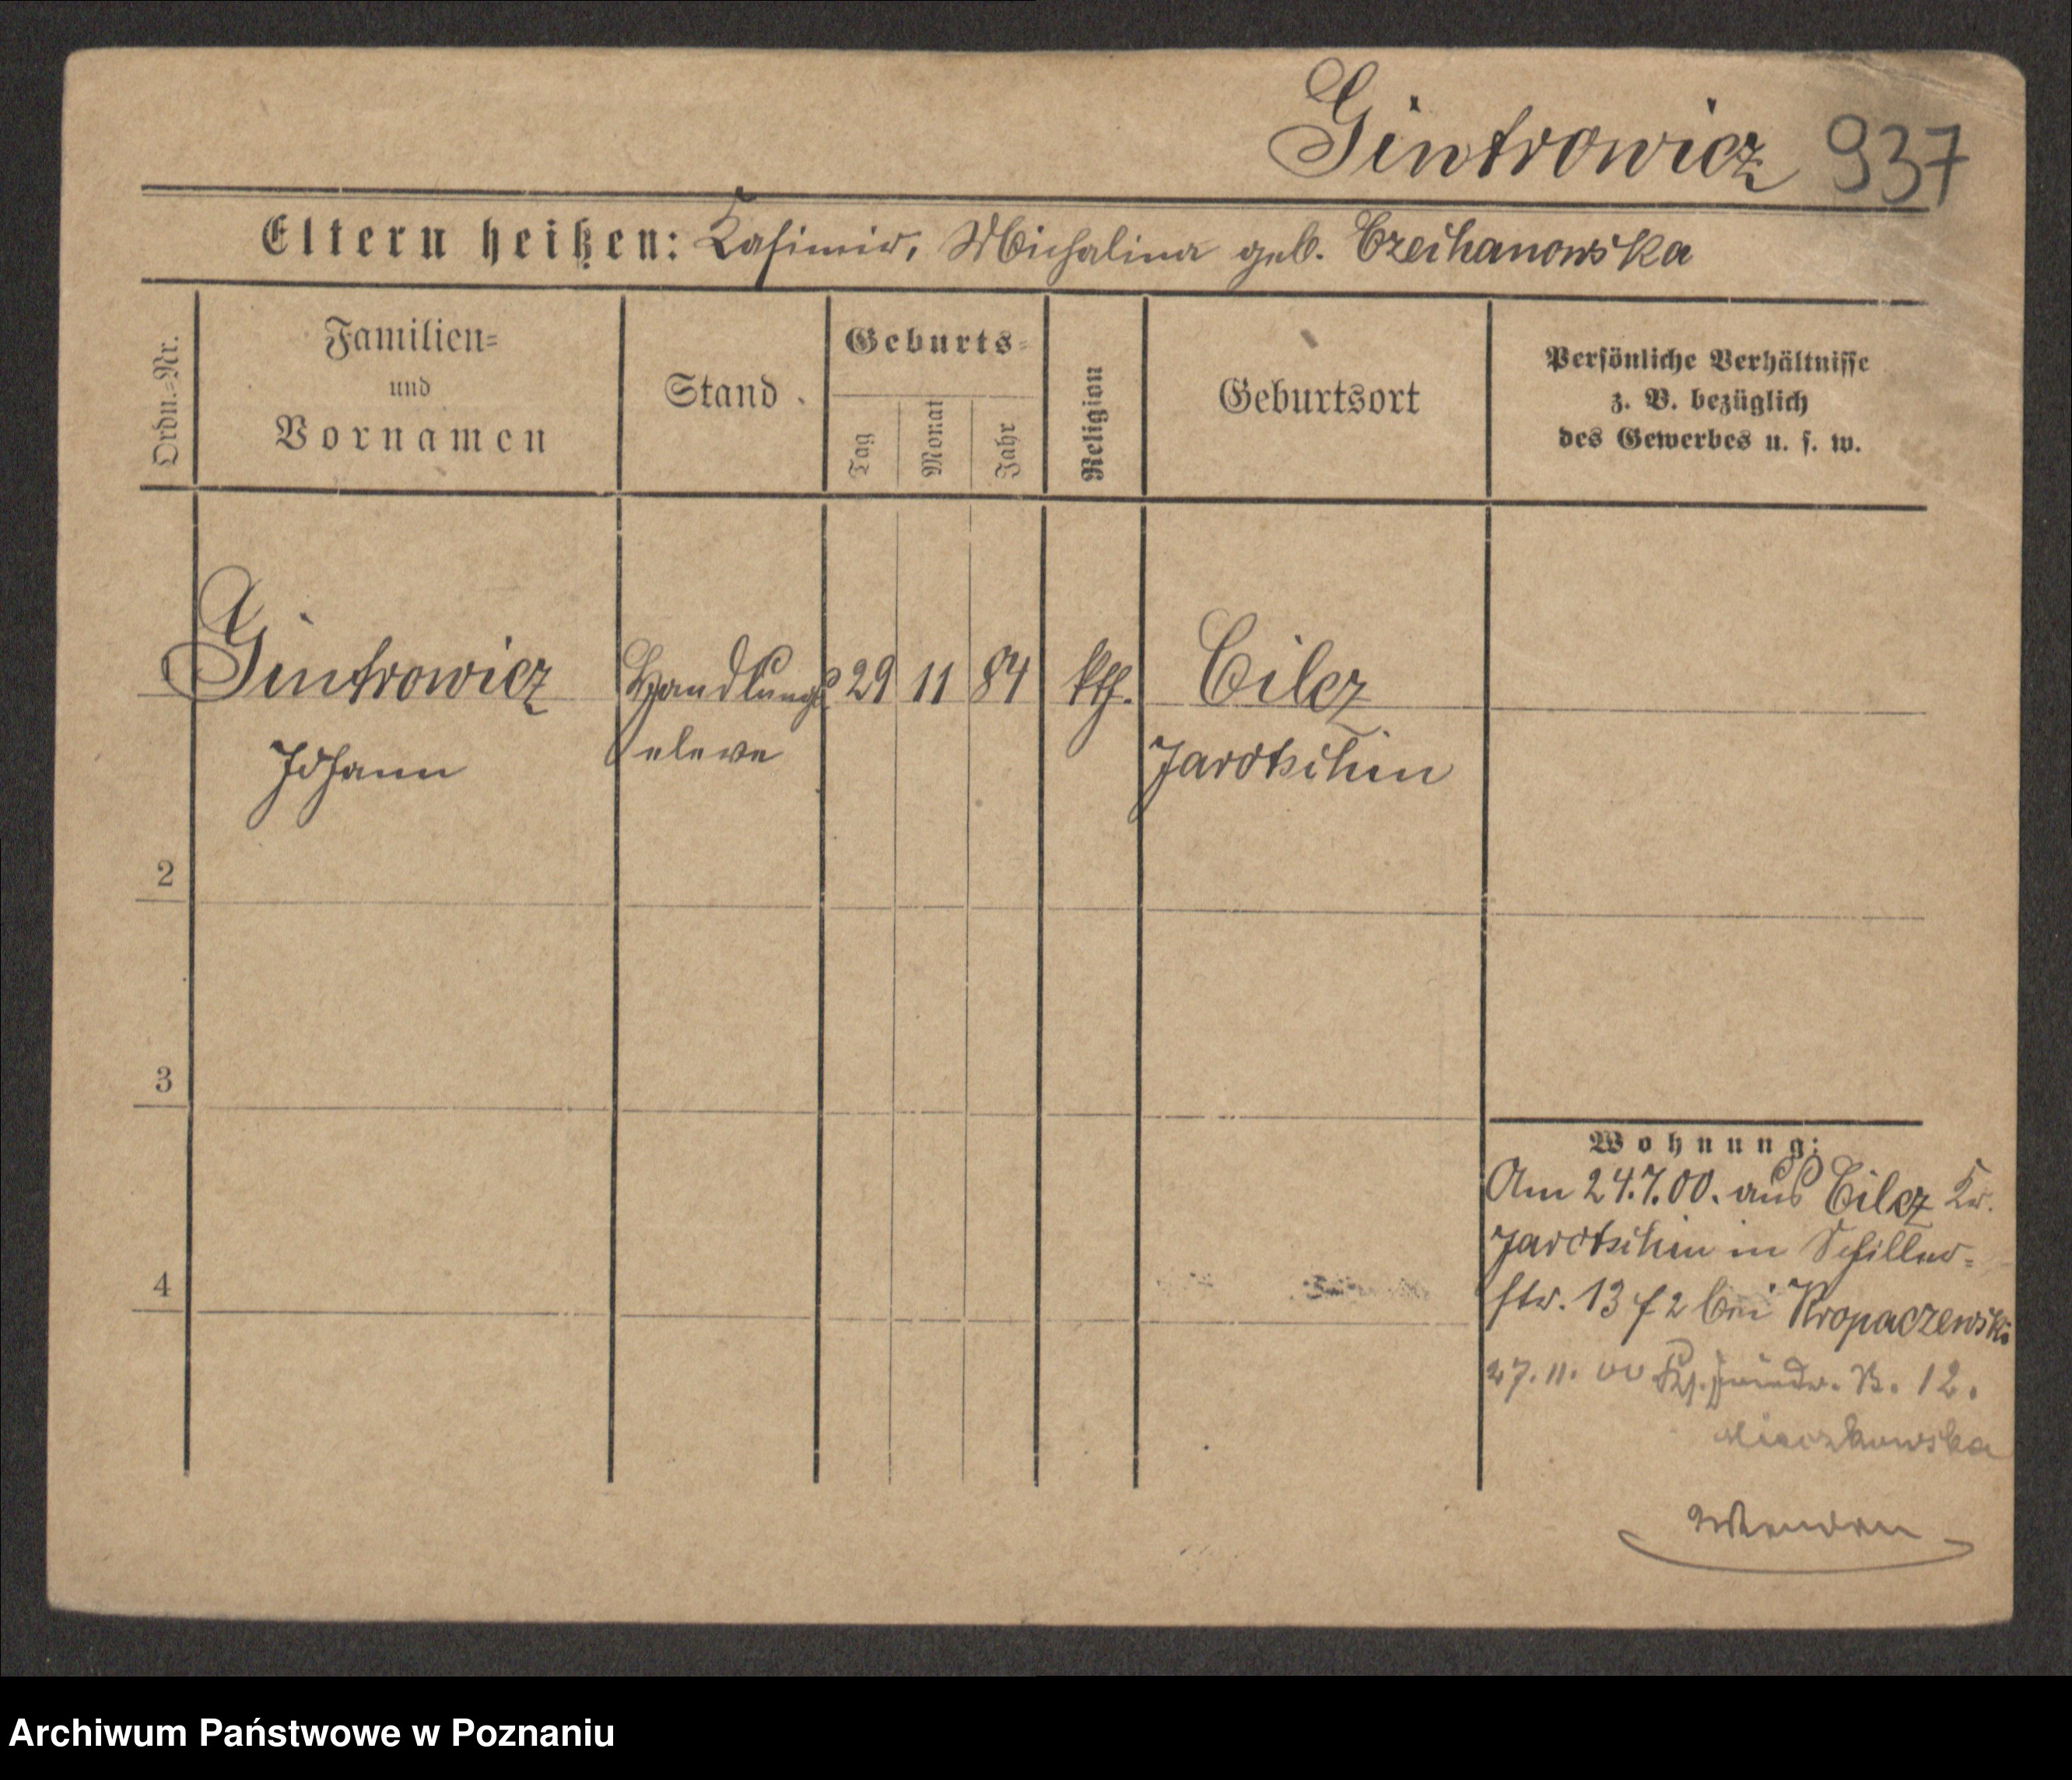 Gintrowicz 937
Eltern heißen: Kasimir, Michalina geb. Czechanowska
Ordn.=Nr.
Familien=
und
Vornamen
Stand
Geburts=
Tag
Monat
Jahr
Religion
Geburtsort
Persönliche Verhältnisse
z. B. bezüglich
des Gewerbes u. s. w.
Gintrowicz Handlungs 29 11 84 kth. Cilcz
Johann eleve Jarotschin
2
3
4
Wohnung:
Am 24.7.00. aus Cilcz Kr.
Jarotschin in Schiller=
str. 13 f 2 bei Kropaczewski
27. 11. 00 12.
Archiwum Państwowe w Poznaniu